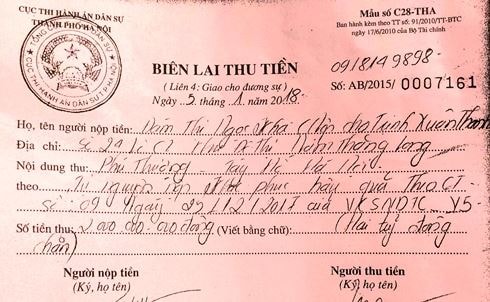 CỤC THI HÀNH ÁN DÂN SỰ
THÀNH PHỐ HÀ NỘI
Mẫu số C28-THA
Ban hành kèm theo TT số: 91/2010/TT-BTC
ngày 17/6/2010 của Bộ Tài chính
0918149898-
BIÊN LAI THU TIỀN
( Liên 4: Giao cho đương sự )
Số: AB/2015/ 0007161
Ngày 5. tháng .1. năm 2018.
Họ, tên người nộp tiền: Đàm Thị Ngọc Kha (Nộp cho Trịnh Xuân Thanh
Địa chỉ: Số 24 Khu Đô Thị Nam Thăng Long
Nội dung thu: Phú Thượng Tây Hồ Hà Nội
theo Tự nguyện nộp khắc phục hậu quả Theo CT
số 09 ngày 29/12/2017 của VKSNDTC V5-
Số tiền thu: 2000.000.000đồng (Viết bằng chữ): (Hai tỷ đồng
chẵn)
Người nộp tiền
(Ký, họ tên)
Người thu tiền
(Ký, họ tên)